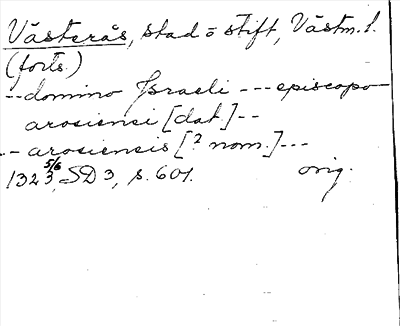 Västerås, stad o stift, Västm. l.
(forts.)
--domino Israeli --- episcopo
arosiensi [dat.]--
-- arosiensis [? nom.]---
1323 5/6, SD 3, s. 601. orig.